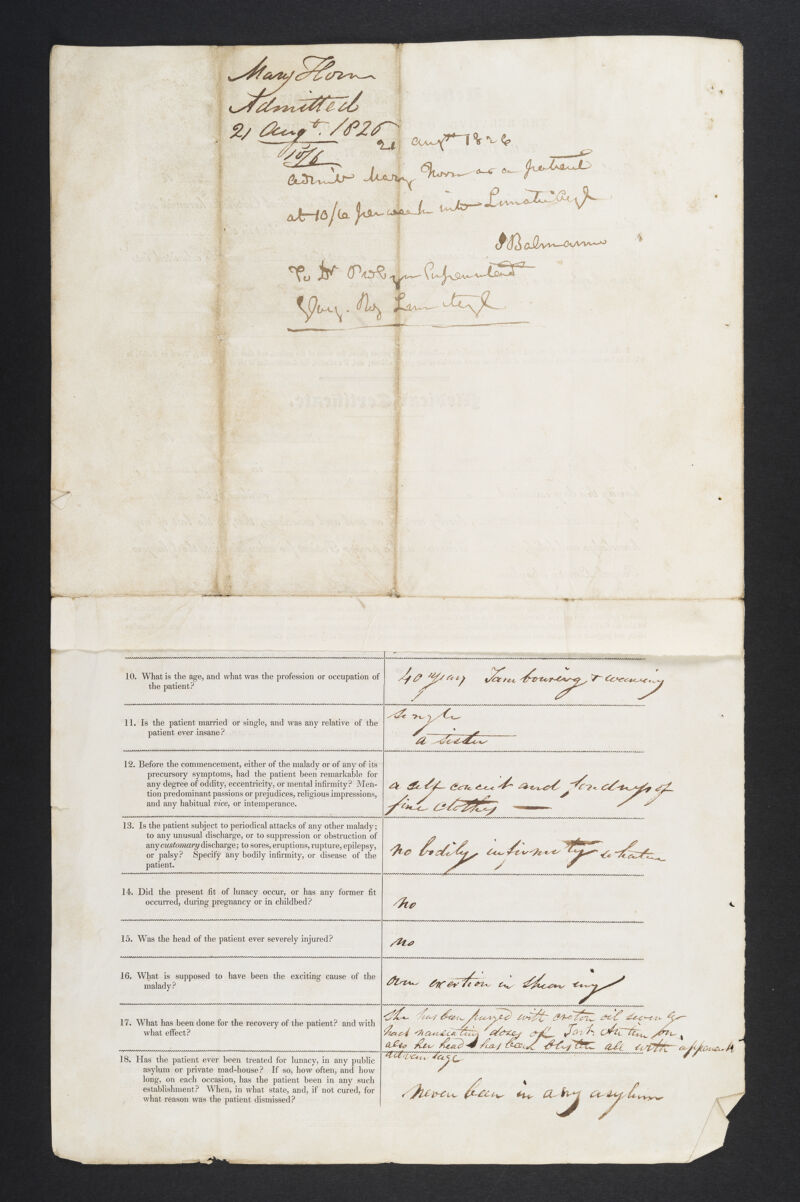 Mary Horn
Admitted
21 Augt. 1826
10/6
21 augt 1826
Admit Mary Horn as a patient
at 10/6 per week into Lunatic Asyl
J Balmanno
To Dr
Glasg. Roy Lun Asyl
10. What is the age, and what was the profession or occupation of
the patient?
40 years Tambouring & weaving
11. Is the patient married or single, and was any relative of the
patient ever insane?
single
a sister
12. Before the commencement, either of the malady or of any of its
precursory symptoms, had the patient been remarkable for
any degree of oddity, eccentricity, or mental infirmity? Men-
tion predominant passions or prejudices, religious impressions,
and any habitual vice, or intemperance.
a self conceit and fondness of
fine clothes —
13. Is the patient subject to periodical attacks of any other malady;
to any unusual discharge, or to suppression or obstruction of
any customary discharge; to sores, eruptions, rupture, epilepsy,
or palsy? Specify any bodily infirmity, or disease of the
patient.
no bodily infirmity whatever
14. Did the present fit of lunacy occur, or has any former fit
occurred, during pregnancy or in childbed?
no
15. Was the head of the patient ever severely injured?
no
16. What is supposed to have been the exciting cause of the
malady?
over exertion in shearing
17. What has been done for the recovery of the patient? and with
what effect?
She has been purged with croton oil
had nauseating doses of Tart. Antimon.
also her head has been blister all with apparent
advantage
18. Has the patient ever been treated for lunacy, in any public
asylum or private mad-house? If so, how often, and how
long, on each occasion, has the patient been in any such
establishment? When, in what state, and, if not cured, for
what reason was the patient dismissed?
Never been in any asylum
Medical Certificate.